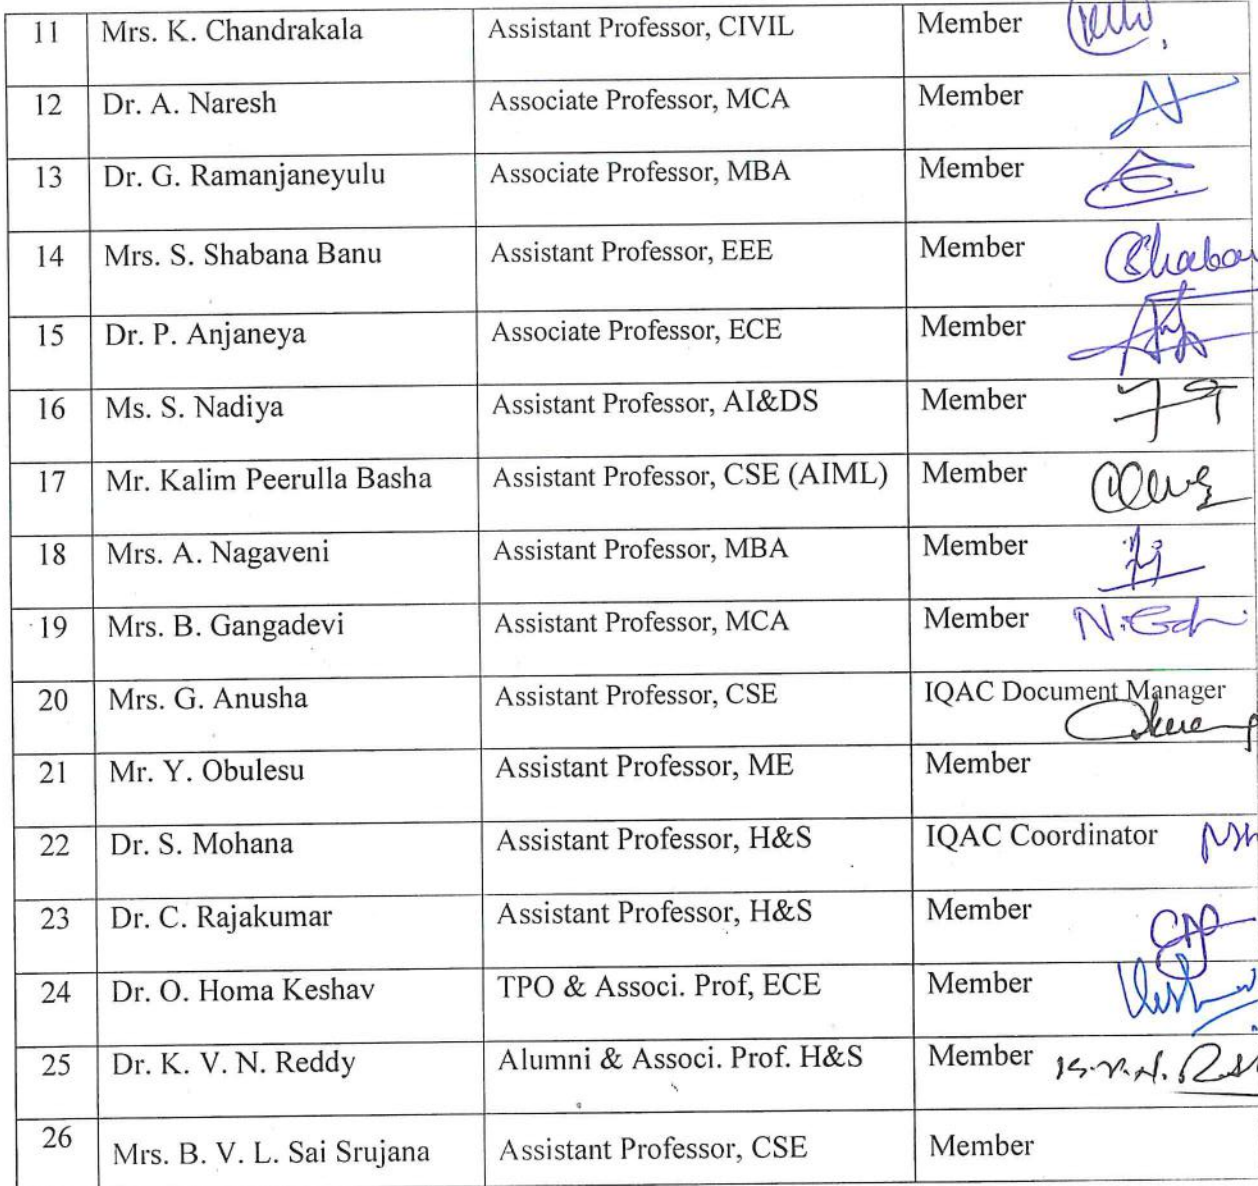 11 Mrs. K. Chandrakala Assistant Professor, CIVIL Member
12 Dr. A. Naresh Associate Professor, MCA Member
13 Dr. G. Ramanjaneyulu Associate Professor, MBA Member
14 Mrs. S. Shabana Banu Assistant Professor, EEE Member
15 Dr. P. Anjaneya Associate Professor, ECE Member
16 Ms. S. Nadiya Assistant Professor, AI&DS Member
17 Mr. Kalim Peerulla Basha Assistant Professor, CSE (AIML) Member
18 Mrs. A. Nagaveni Assistant Professor, MBA Member
19 Mrs. B. Gangadevi Assistant Professor, MCA Member
20 Mrs. G. Anusha Assistant Professor, CSE IQAC Document Manager
21 Mr. Y. Obulesu Assistant Professor, ME Member
22 Dr. S. Mohana Assistant Professor, H&S IQAC Coordinator
23 Dr. C. Rajakumar Assistant Professor, H&S Member
24 Dr. O. Homa Keshav TPO & Associ. Prof, ECE Member
25 Dr. K. V. N. Reddy Alumni & Associ. Prof. H&S Member
26 Mrs. B. V. L. Sai Srujana Assistant Professor, CSE Member